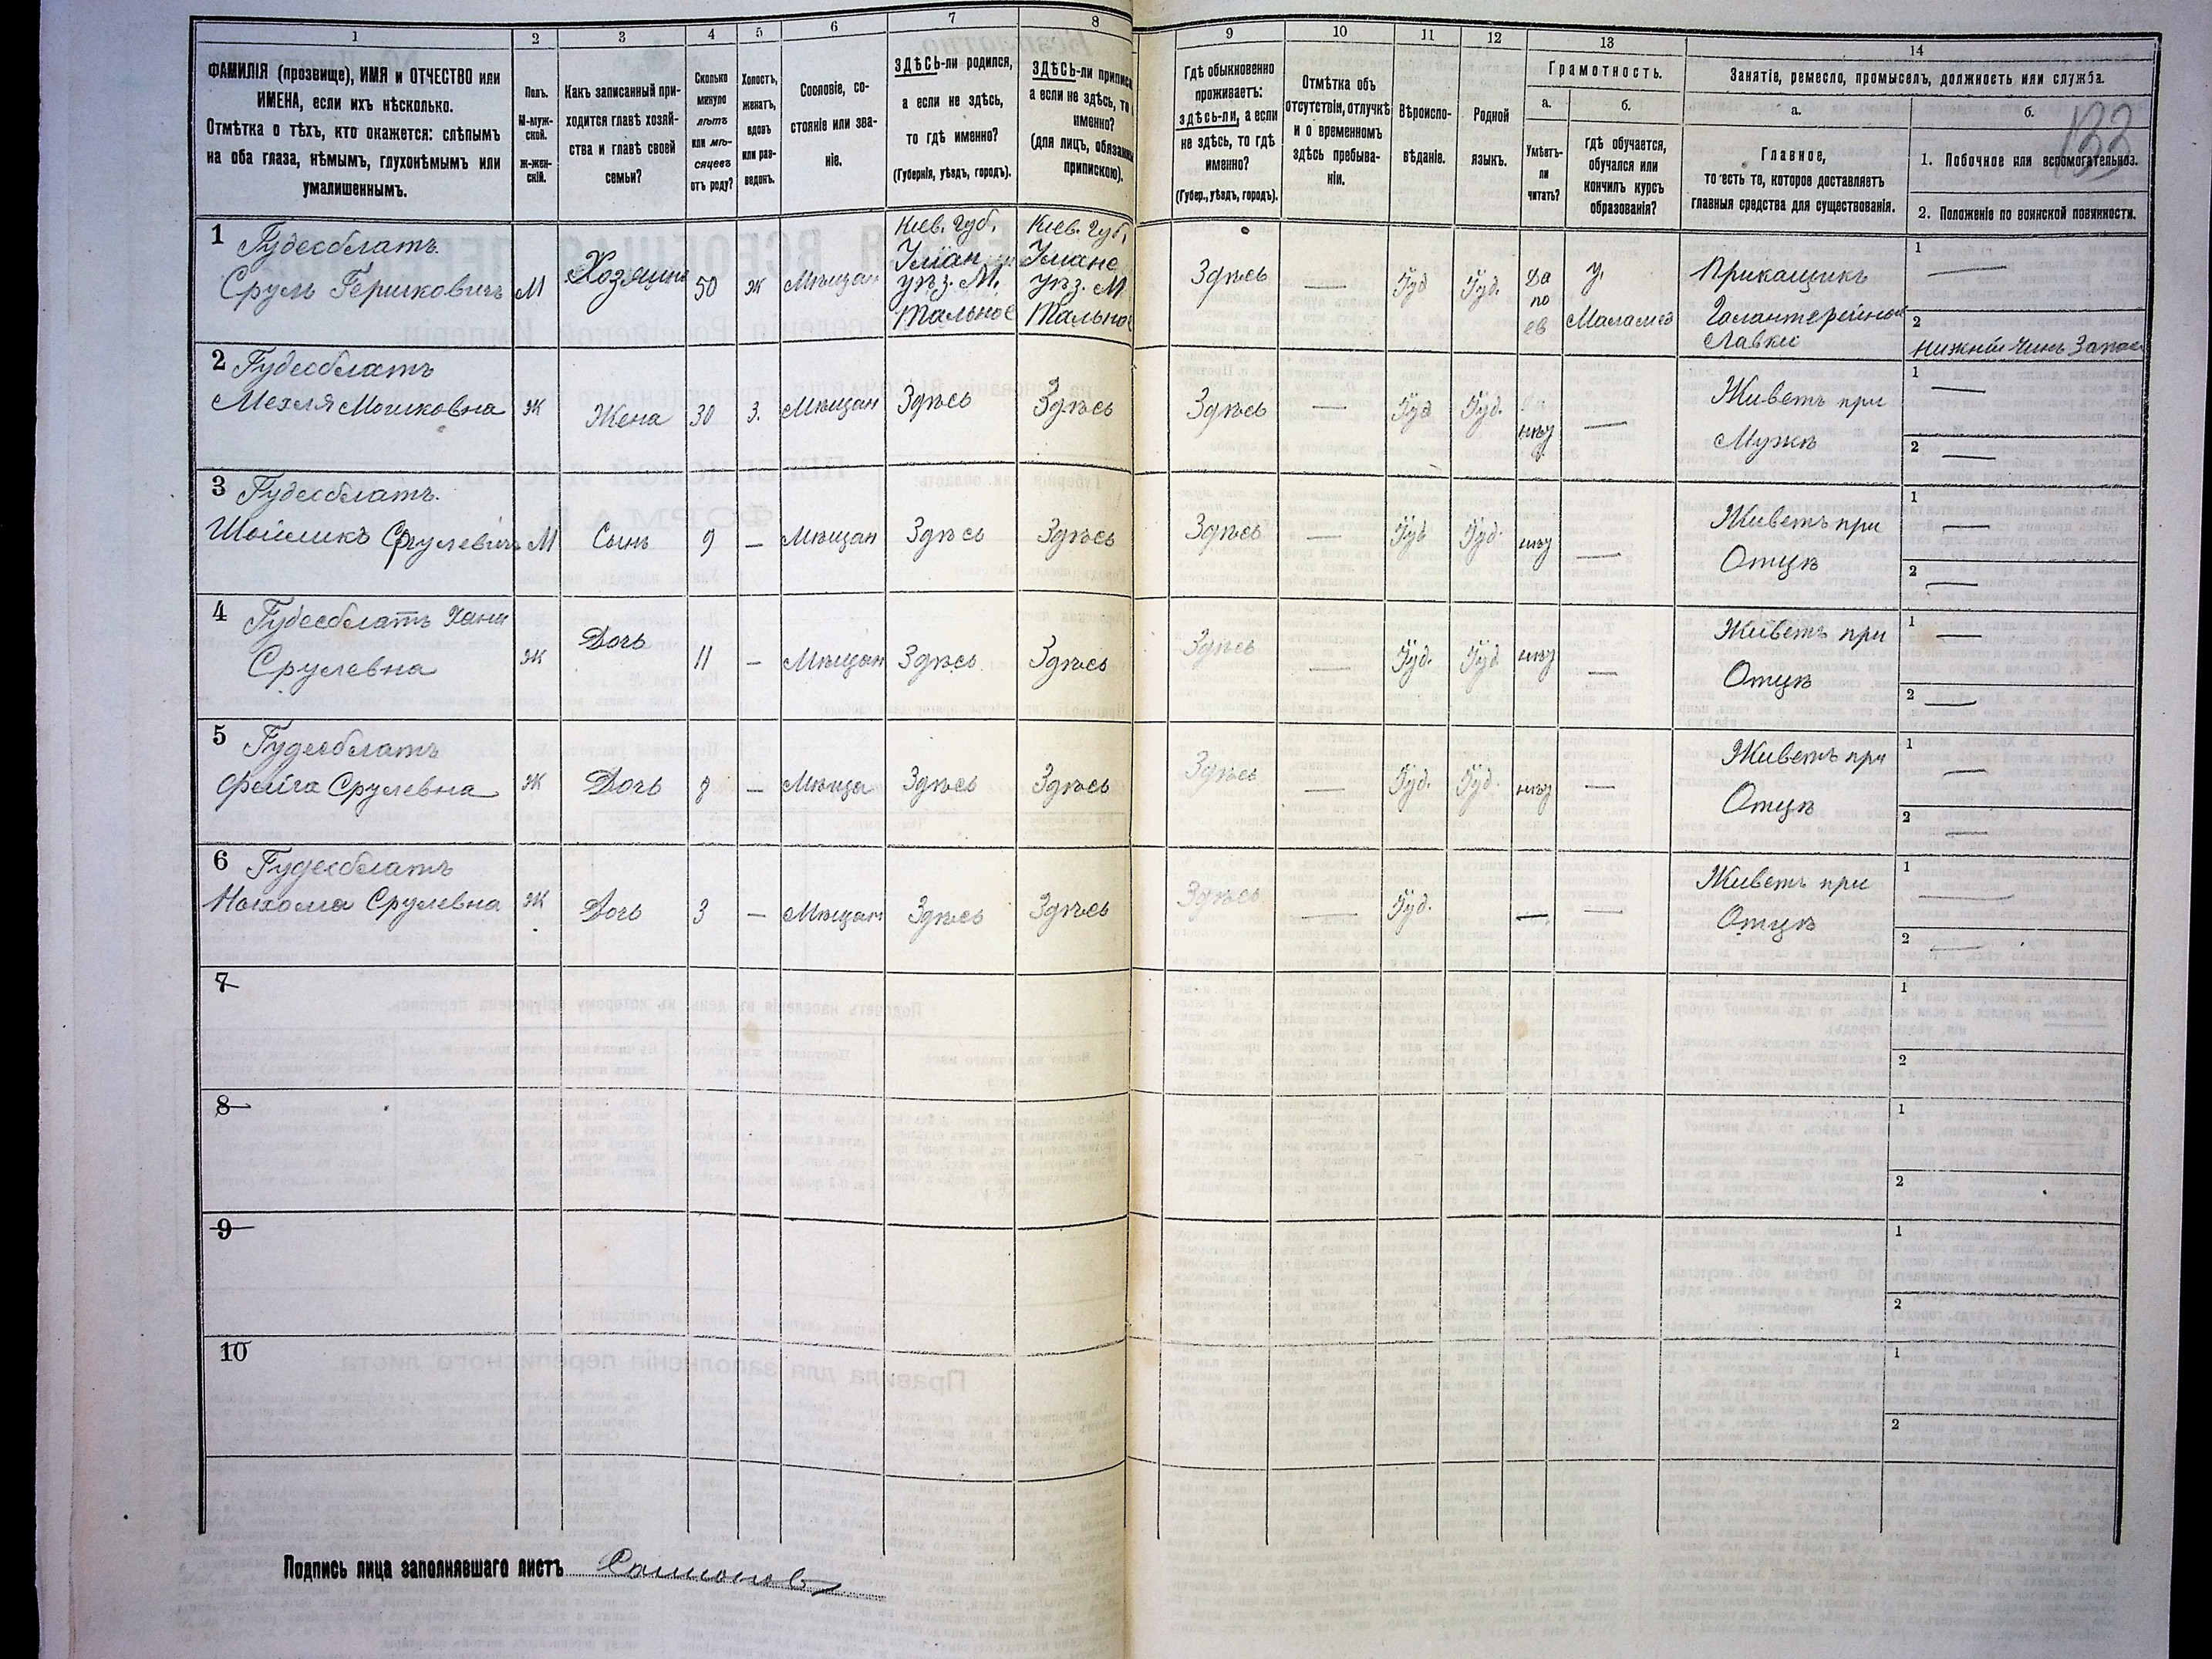 1
2
3
4
5
6
7
8
ФАМИЛІЯ (прозвище), ИМЯ и ОТЧЕСТВО или
ИМЕНА, если ихъ нѣсколько.
Отмѣтка о тѣхъ, кто окажется: слѣпымъ
на оба глаза, нѣмымъ, глухонѣмымъ или
умалишеннымъ.
Полъ.
М-муж-
ской.
ж-жен-
скій.
Какъ записанный при-
ходится главѣ хозяй-
ства и главѣ своей
семьи?
Сколько
минуло
лѣтъ
или мѣ-
сяцевъ
отъ роду?
Холостъ,
женатъ,
вдовъ
или раз-
веденъ.
Сословіе, со-
стояніе или зва-
ніе.
ЗДѢСЬ-ли родился,
а если не здѣсь,
то гдѣ именно?
(Губернія, уѣздъ, городъ).
ЗДѢСЬ-ли приписа
а если не здѣсь, то
именно?
(для лицъ, обязанны
припискою).
9
10
11
12
13
14
Гдѣ обыкновенно
проживаетъ:
здѣсь-ли, а если
не здѣсь, то гдѣ
именно?
(Губер., уѣздъ, городъ).
Отмѣтка объ
отсутствіи, отлучкѣ
и о временномъ
здѣсь пребыва-
ніи.
Вѣроиспо-
вѣданіе.
Родной
языкъ.
Грамотность.
а.
б.
Умѣетъ-
ли
читать?
Гдѣ обучается,
обучался или
кончилъ курсъ
образованія?
Занятіе, ремесло, промыселъ, должность или служба.
а.
б.
133
Главное,
то есть то, которое доставляетъ
главныя средства для существованія.
1. Побочное или вспомогательное.
2. Положеніе по воинской повинности.
1 Гудесблатъ
Сруль Гершковичъ
М
Хозяинъ
50
Ж
Мѣщан
Кіев. губ.
Уман.
уѣз. М.
Тальное
Кіев. губ.
Умане
уѣз. М
Тальное
Здѣсь
—
Іуд
Іуд.
Да
по
ев
у
Меламед
Прикащикъ
Галантерейной
Лавки
1 —
2
Нижній Чинъ Запас
2 Гудесблатъ
Мехля Мошковна
Ж
Жена
30
З.
Мѣщан
Здѣсь
Здѣсь
Здѣсь
—
Іуд
Іуд.
нѣт
—
Живетъ при
Мужѣ
1 —
2 —
3 Гудесблатъ.
Шойликъ Срулевичъ
М
Сынъ
9
—
Мѣщан
Здѣсь
Здѣсь
Здѣсь
—
Іуд
Іуд.
нѣт
—
Живетъ при
Отцѣ
1 —
2 —
4 Гудесблатъ Хана
Срулевна
Ж
Дочь
11
—
Мѣщан
Здѣсь
Здѣсь
Здѣсь
—
Іуд.
Іуд
нѣт
—
Живетъ при
Отцѣ
1 —
2 —
5 Гудесблатъ
Фейга Срулевна
Ж
Дочь
8
—
Мѣща
Здѣсь
Здѣсь
Здѣсь
—
Іуд.
Іуд.
нѣт
—
Живетъ при
Отцѣ
1 —
2 —
6 Гудесблатъ
Нахома Срулевна
Ж
Дочь
3
—
Мѣщан
Здѣсь
Здѣсь
Здѣсь
—
Іуд.
—
—
Живетъ при
Отцѣ
1 —
2 —
7
1
2
8
1
2
9
1
2
10
1
2
Подпись лица заполнявшаго листъ